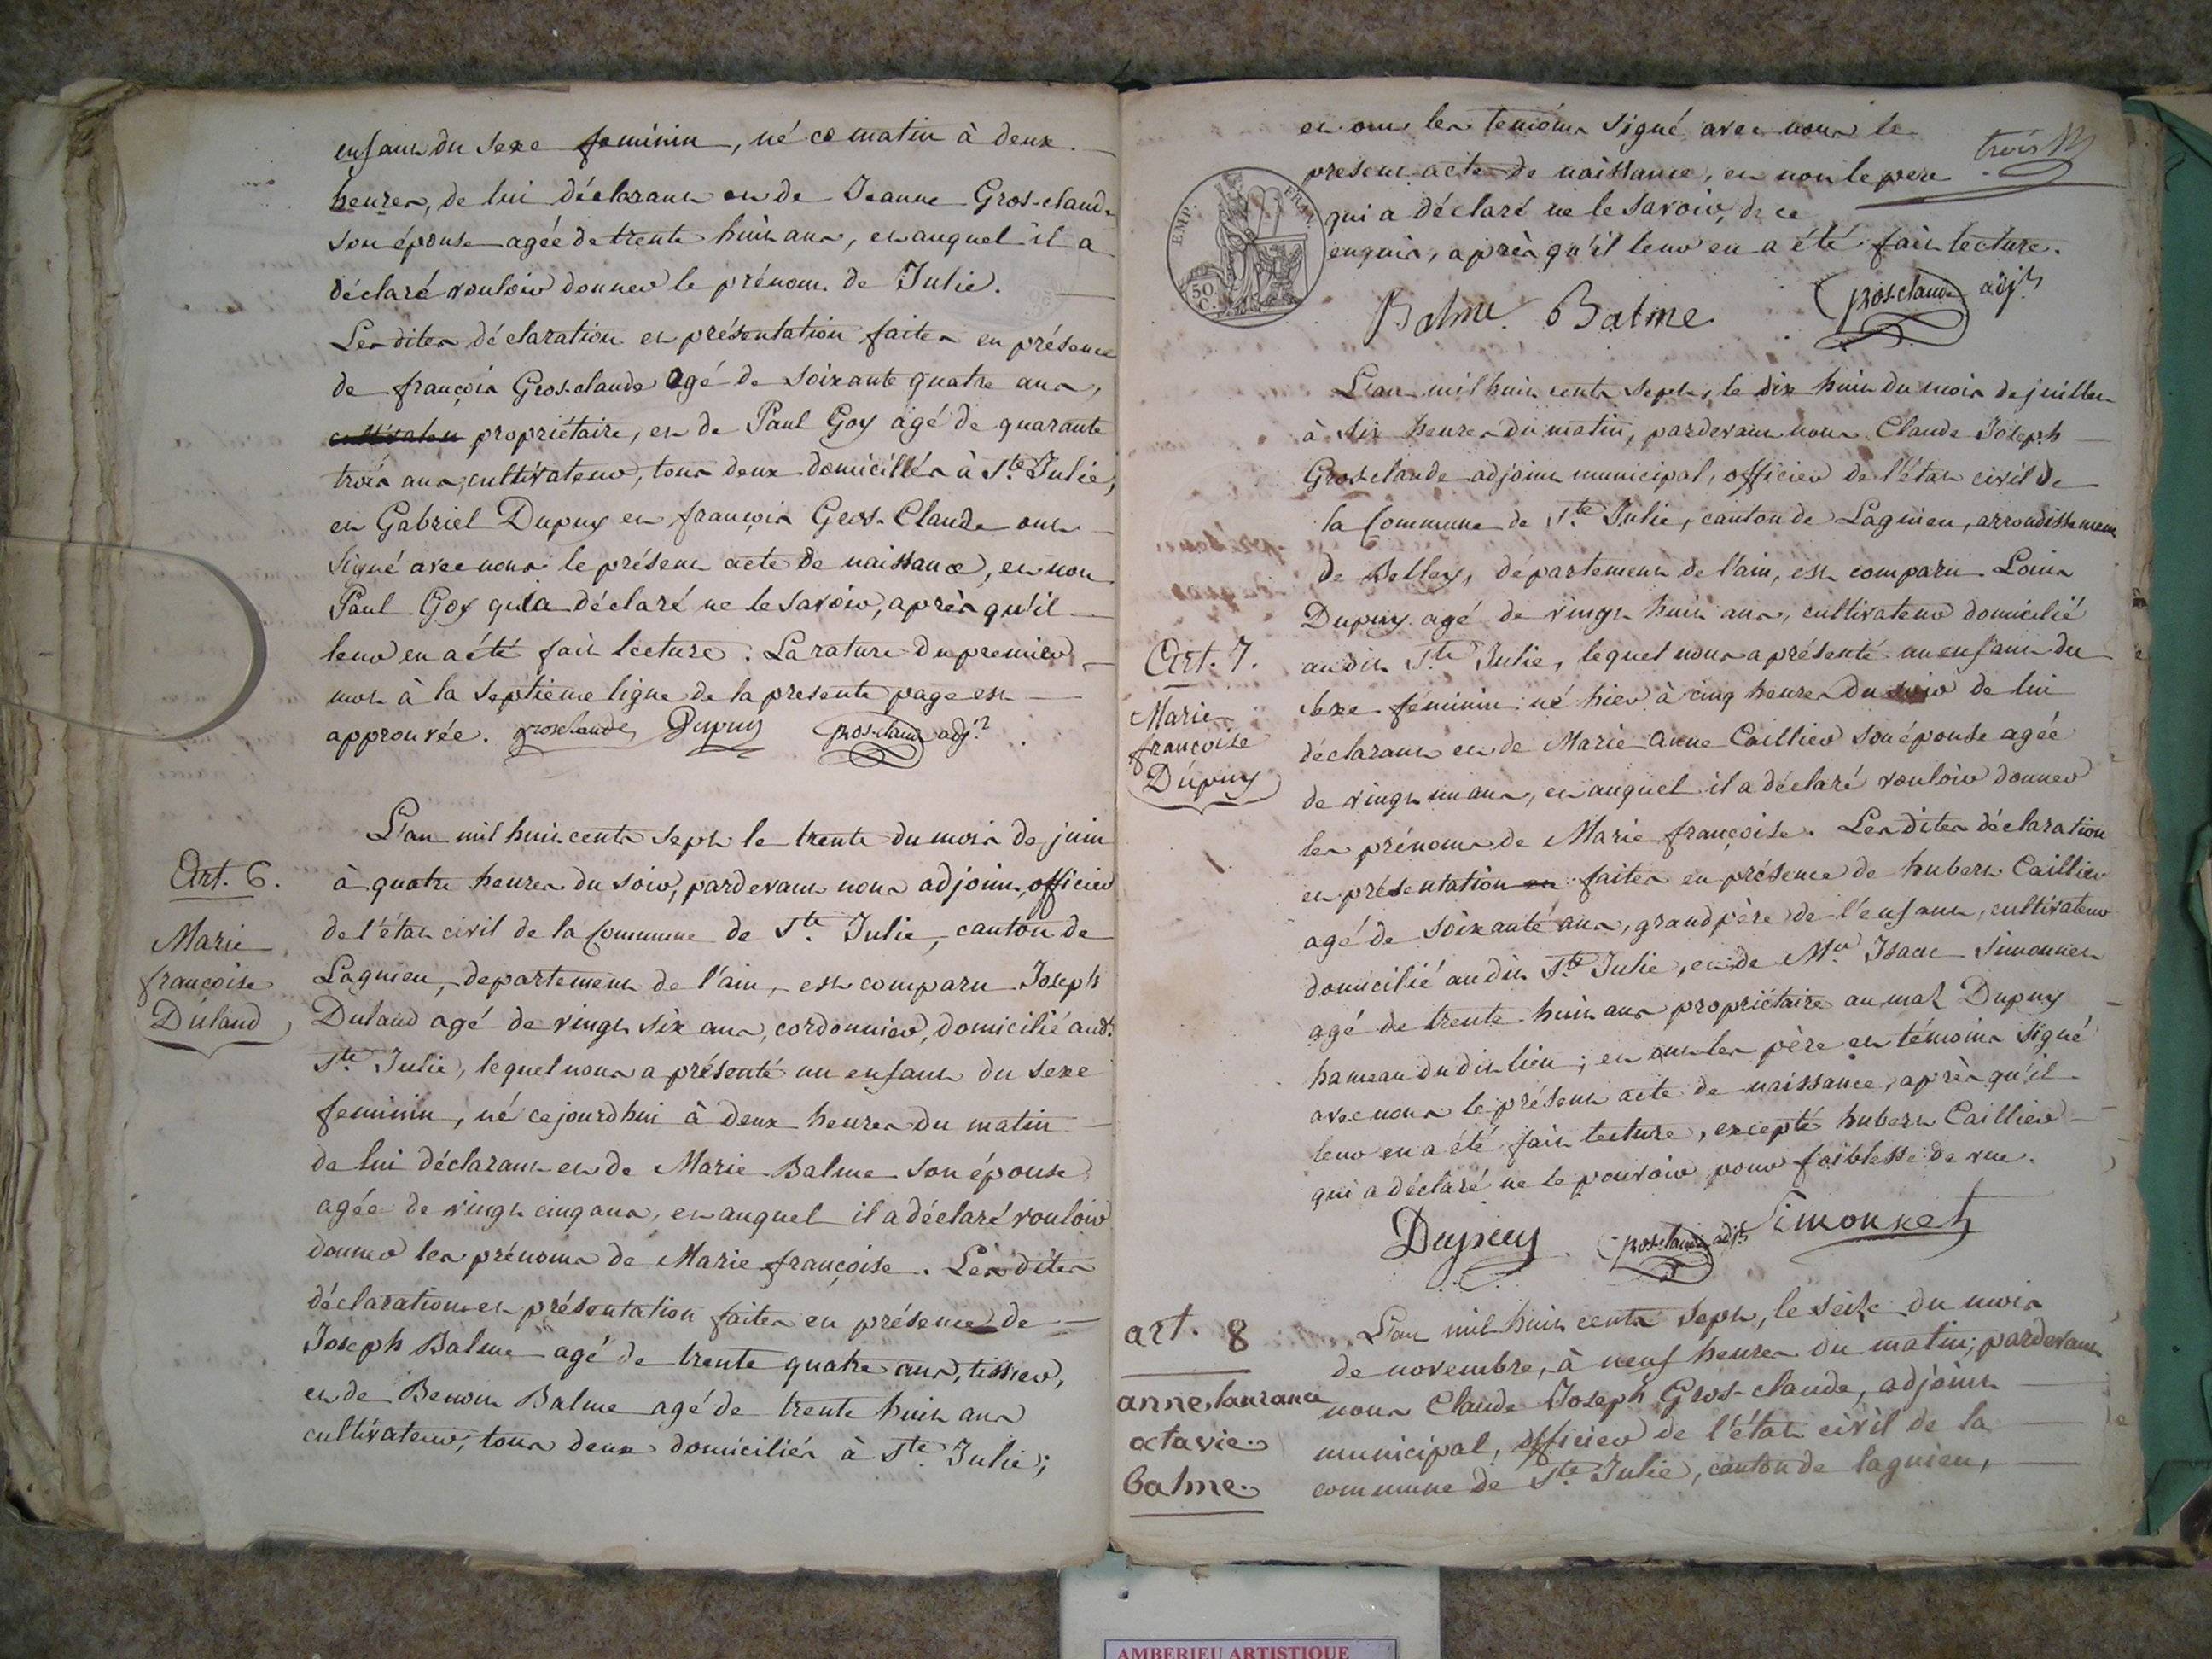 enfant du sexe feminin, né ce matin à deux
heures, de lui déclarant et de Jeanne Gros-claude
son épouse agée de trente huit ans, et auquel il a
déclaré vouloir donner le prénom de Julie.
Les dites déclaration et présentation faites en présence
de françois Gros-claude agé de soixante quatre ans,
cultivateur propriétaire, et de Paul Goy agé de quarante
trois ans, cultivateur, tous deux domiciliés à Ste. Julie,
et Gabriel Dupuy et françois Gros-Claude ont
signé avec nous le présent acte de naissance, et non
Paul Goy qui a déclaré ne le savoir, après qu'il
leur en a été fait lecture. La rature du premier
mot à la septieme ligne de la presente page est
approuvée. groseclaude Dupuy Groseclaude adjt.
Art. 6.
Marie
françoise
Duland
L'an mil huit cents sept le trente du mois de juin
à quatre heures du soir, pardevant nous adjoint, officier
de l'état civil de la Commune de Ste. Julie, canton de
Lagnieu, departement de l'ain, est comparu Joseph
Duland agé de vingt six ans, cordonnier, domicilié audt.
Ste. Julie, lequel nous a présenté un enfant du sexe
feminin, né cejourdhui à deux heures du matin
de lui déclarant et de Marie Balme son épouse
agée de vingt cinq ans, et auquel il a déclaré vouloir
donner les prénoms de Marie françoise. Les dites
déclaration et présentation faites en présence de
Joseph Balme agé de trente quatre ans, tissier,
et de Benoit Balme agé de trente huit ans
cultivateur, tous deux domiciliés à Ste. Julie;
et ont les temoins signé avec nous le
present acte de naissance, et non le pere
qui a déclaré ne le savoir, de ce
enquis, après qu'il leur en a été fait lecture.
trois
EMP. FRAN.
50 C.
Balme Balme Groseclaude adjt
L'an mil huit cents sept, le dix huit du mois de juillet
à six heures du matin, pardevant nous Claude Joseph
Gros-claude adjoint municipal, officier de l'état civil de
la Commune de Ste. Julie, canton de Lagnieu, arrondissement
de Belley, département de l'ain, est comparu Louis
Dupuy agé de vingt huit ans, cultivateur domicilié
Art. 7.
Marie
françoise
Dupuy
audit Ste. Julie, lequel nous a présenté un enfant du
sexe féminin né hier à cinq heures du soir de lui
déclarant et de Marie Anne Caillier son épouse agée
de vingt un ans, et auquel il a déclaré vouloir donner
les prénoms de Marie françoise. Les dites déclaration
et présentation et faites en présence de hubert Caillier
agé de soixante ans, grand père de l'enfant, cultivateur
domicilié audit Ste. Julie, et de Mr. Isaac Simonnet
agé de trente huit ans propriétaire au maz Dupuy
hameau dudit lieu; et ont les père et témoins signé
avec nous le présent acte de naissance, après qu'il
leur en a été fait lecture, excepté hubert Caillier
qui a déclaré ne le pouvoir pour foiblesse de vue.
Dupuy Groseclaude adjt Simonnet
art. 8
anne laurance
octavie
balme
L'an mil huit cents sept, le seize du mois
de novembre, à neuf heures du matin; pardevant
nous Claude Joseph Gros-claude, adjoint
municipal, officier de l'état civil de la
commune de Ste. Julie, canton de lagnieu,
AMBERIEU ARTISTIQUE